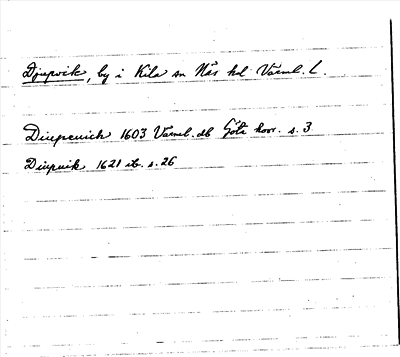 Djupvik, by i Kila sn Näs hd Värml. l.
Diupeuich 1603 Värml. db Göta hovr. s. 3
Diupuik 1621 ib. s. 26